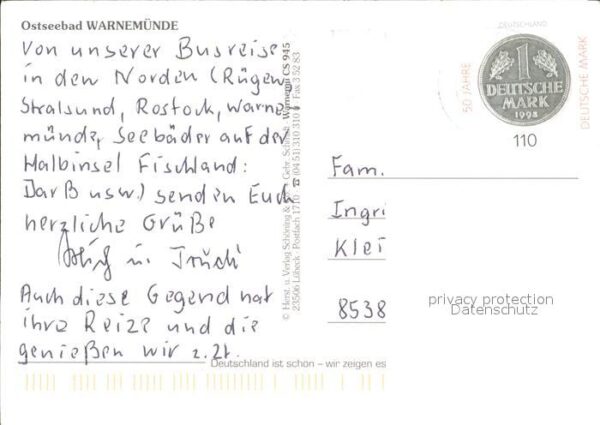 Ostseebad WARNEMÜNDE
Von unserer Busreise
in den Norden (Rügen
Stralsund, Rostock, Warne
münde, Seebäder auf der
Halbinsel Fischland:
Darß usw.) senden Euch
herzliche Grüße
u. Trudi
Auch diese Gegend hat
ihre Reize und die
genießen wir z.Zt.
© Herst. u. Verlag Schöning & Gebr. Schmidt Warnemü CS 945
23506 Lübeck · Postfach 1710 ☎ (04 51) 310 310 Fax 3 52 83
DEUTSCHLAND
50 JAHRE
DEUTSCHE MARK
1
DEUTSCHE
MARK
1998
110
Fam.
Ingri
Klei
8538
privacy protection
Datenschutz
Deutschland ist schön – wir zeigen es